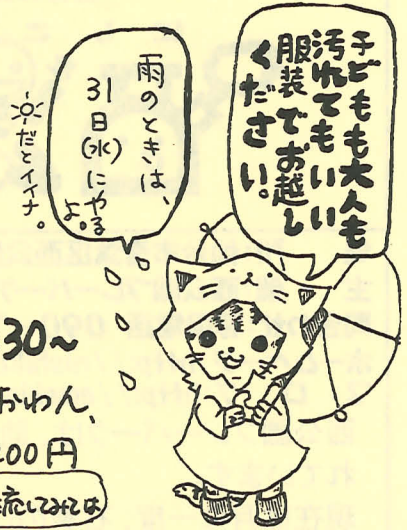 子どもも大人も
汚れてもいい
服装でお越し
ください。
雨のときは、
31日(水)にやる
よ。
☀だとイイナ。
30~
おわん、
00円
流してみては